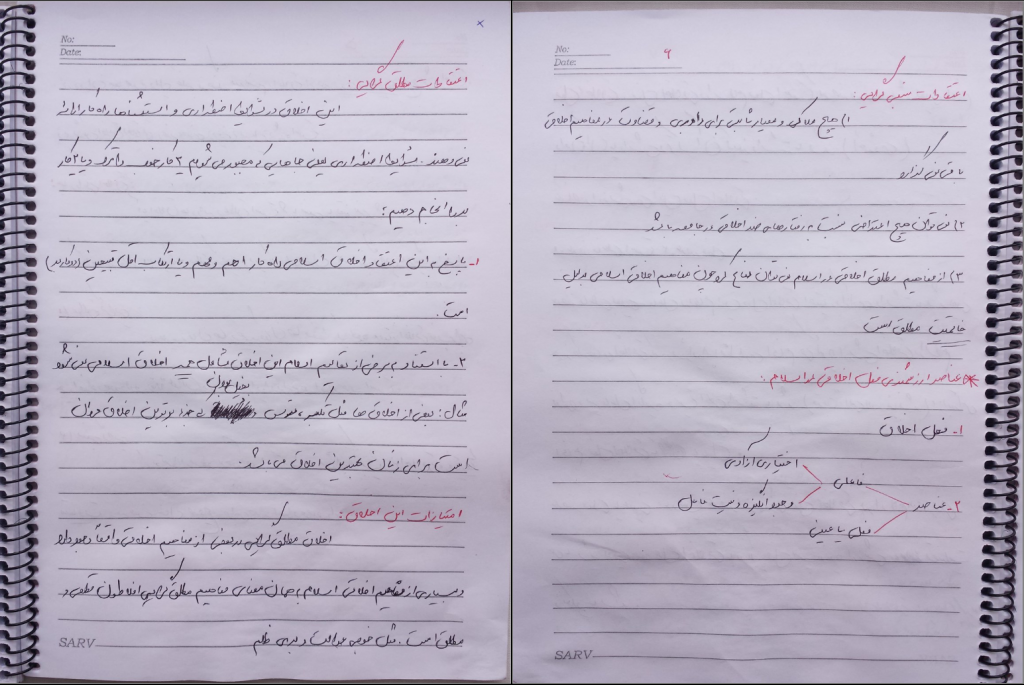 No:
Date:
اعتقادات مطلق گرایی:
این اخلاق در شرایط اضطراری و استثنا راه کار ارائه
نمی دهند. شرایط اضطراری یعنی جاهایی که مجبور می شویم ۲ کار خوب را ترک و یا ۲ کار
بد را انجام دهیم:
۱- پاسخ به این اعتقاد اخلاق اسلامی راه کار اهم و مهم و یا ارتکاب اقل قبیحین
است.
۲- با استناد به برخی از تعالیم اسلام این اخلاق شامل اخلاق اسلامی نمی شود
مثال: بعضی از اخلاق ها مثل تکبر، ترس و بخل بدترین اخلاق مردان
است برای زنان بهترین اخلاق می باشد.
امتیازات این اخلاق:
اخلاق مطلق گرایی در بعضی از مفاهیم اخلاقی واقعاً وجود دارد
و بسیاری از مفاهیم اخلاق اسلام به همان معنای مفاهیم مطلق گرایی افلاطون قطعی و
مطلق است. مثل خوبی عدالت و بدی ظلم
SARV
No:
Date:
۹
اعتقادات نسبی گرایی:
۱) هیچ ملاک و معیار ثابتی برای داوری و قضاوت در مفاهیم اخلاقی
باقی نمی گذارد
۲) نمی توان هیچ اعتراضی نسبت به رفتارهای ضد اخلاقی در جامعه باشد
۳) از مفاهیم مطلق اخلاقی در اسلام نمی توان دفاع کرد چون مفاهیم اخلاق اسلامی بدلیل
خاتمیت مطلق است
* عناصر ارزشمندی فعل اخلاقی در اسلام:
۱- فعل اخلاق
۲- عناصر
فاعلی
اختیاری آزادی
وجود انگیزه و نیت فاعل
فعلی یا عینی
SARV